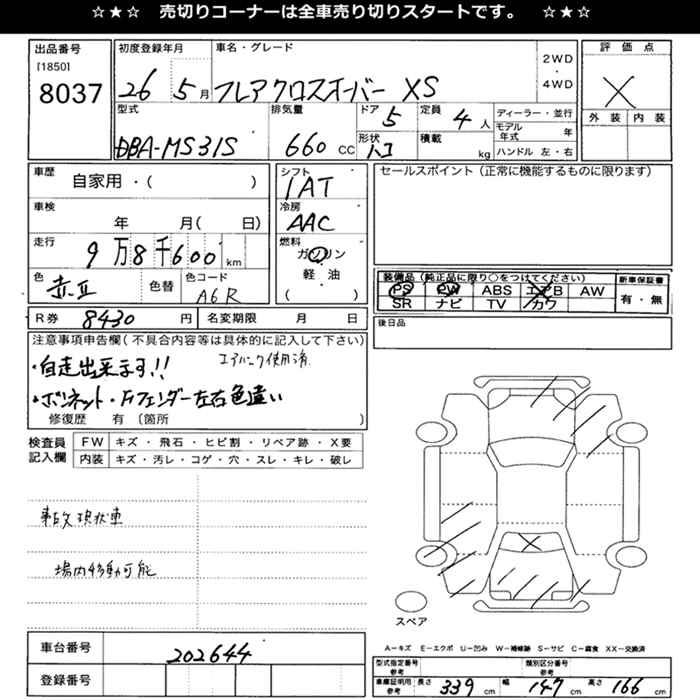 ☆★☆ 売切りコーナーは全車売り切りスタートです。 ☆★☆
出品番号
[1850]
8037
初度登録年月
26 5月
車名・グレード
フレアクロスオーバー XS
2WD
・
4WD
評価点
X
外装 内装
型式
DBA-MS31S
排気量
660 cc
ドア
5
定員
4人
形状
ハコ
積載
kg
ディーラー・並行
モデル年式 年
ハンドル 左・右
車歴
自家用・( )
シフト
IAT
車検
年 月( 日)
冷房
AAC
走行
9万8千600km
燃料
ガソリン
軽・油
( )
色
赤II
色替
色コード
A6R
R券 8430円
名変期限 月 日
セールスポイント(正常に機能するものに限ります)
装備品(純正品に限り○をつけてください)
PS PW ABS エアB AW
SR ナビ TV カワ
新車保証書
有・無
後日品
注意事項申告欄(不具合内容等は具体的に記入して下さい)
・自走出来ます!! エアバック使用済
・ボンネット・Fフェンダー左右色違い
修復歴 有〔箇所 〕
検査員記入欄
FW キズ・飛石・ヒビ割・リペア跡・X要
内装 キズ・汚レ・コゲ・穴・スレ・キレ・破レ
事故現状車
場内移動可能
スペア
車台番号 202644
登録番号
A−キズ E−エクボ U−凹み W−補修跡 S−サビ C−腐食 XX−交換済
型式指定番号 参考
類別区分番号 参考
車庫証明用 参考 長さ 339 cm 幅 147 cm 高さ 166 cm